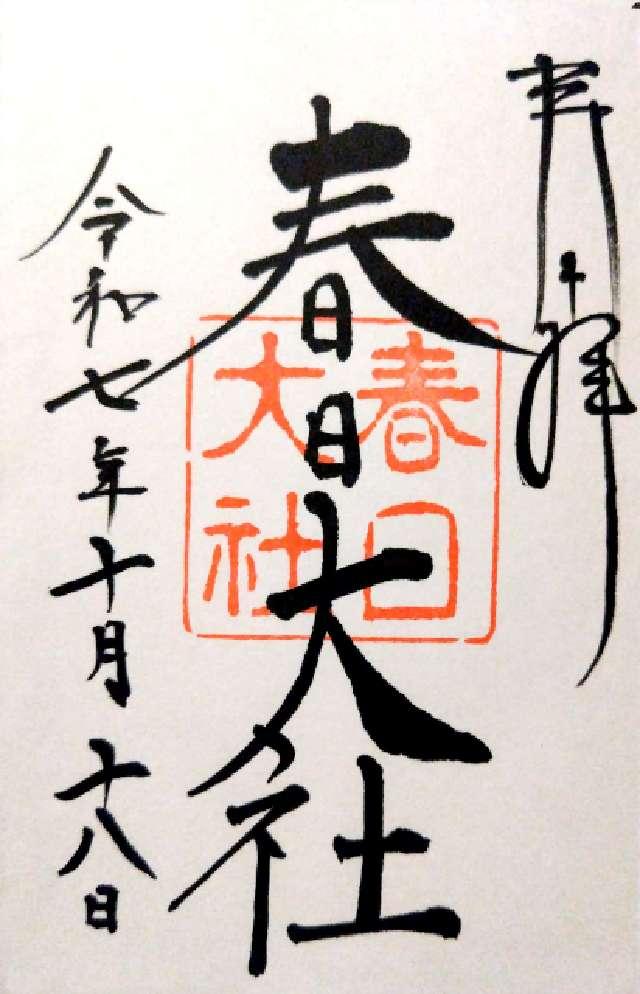 奉拝
春日大社
春日大社
令和七年十月十八日